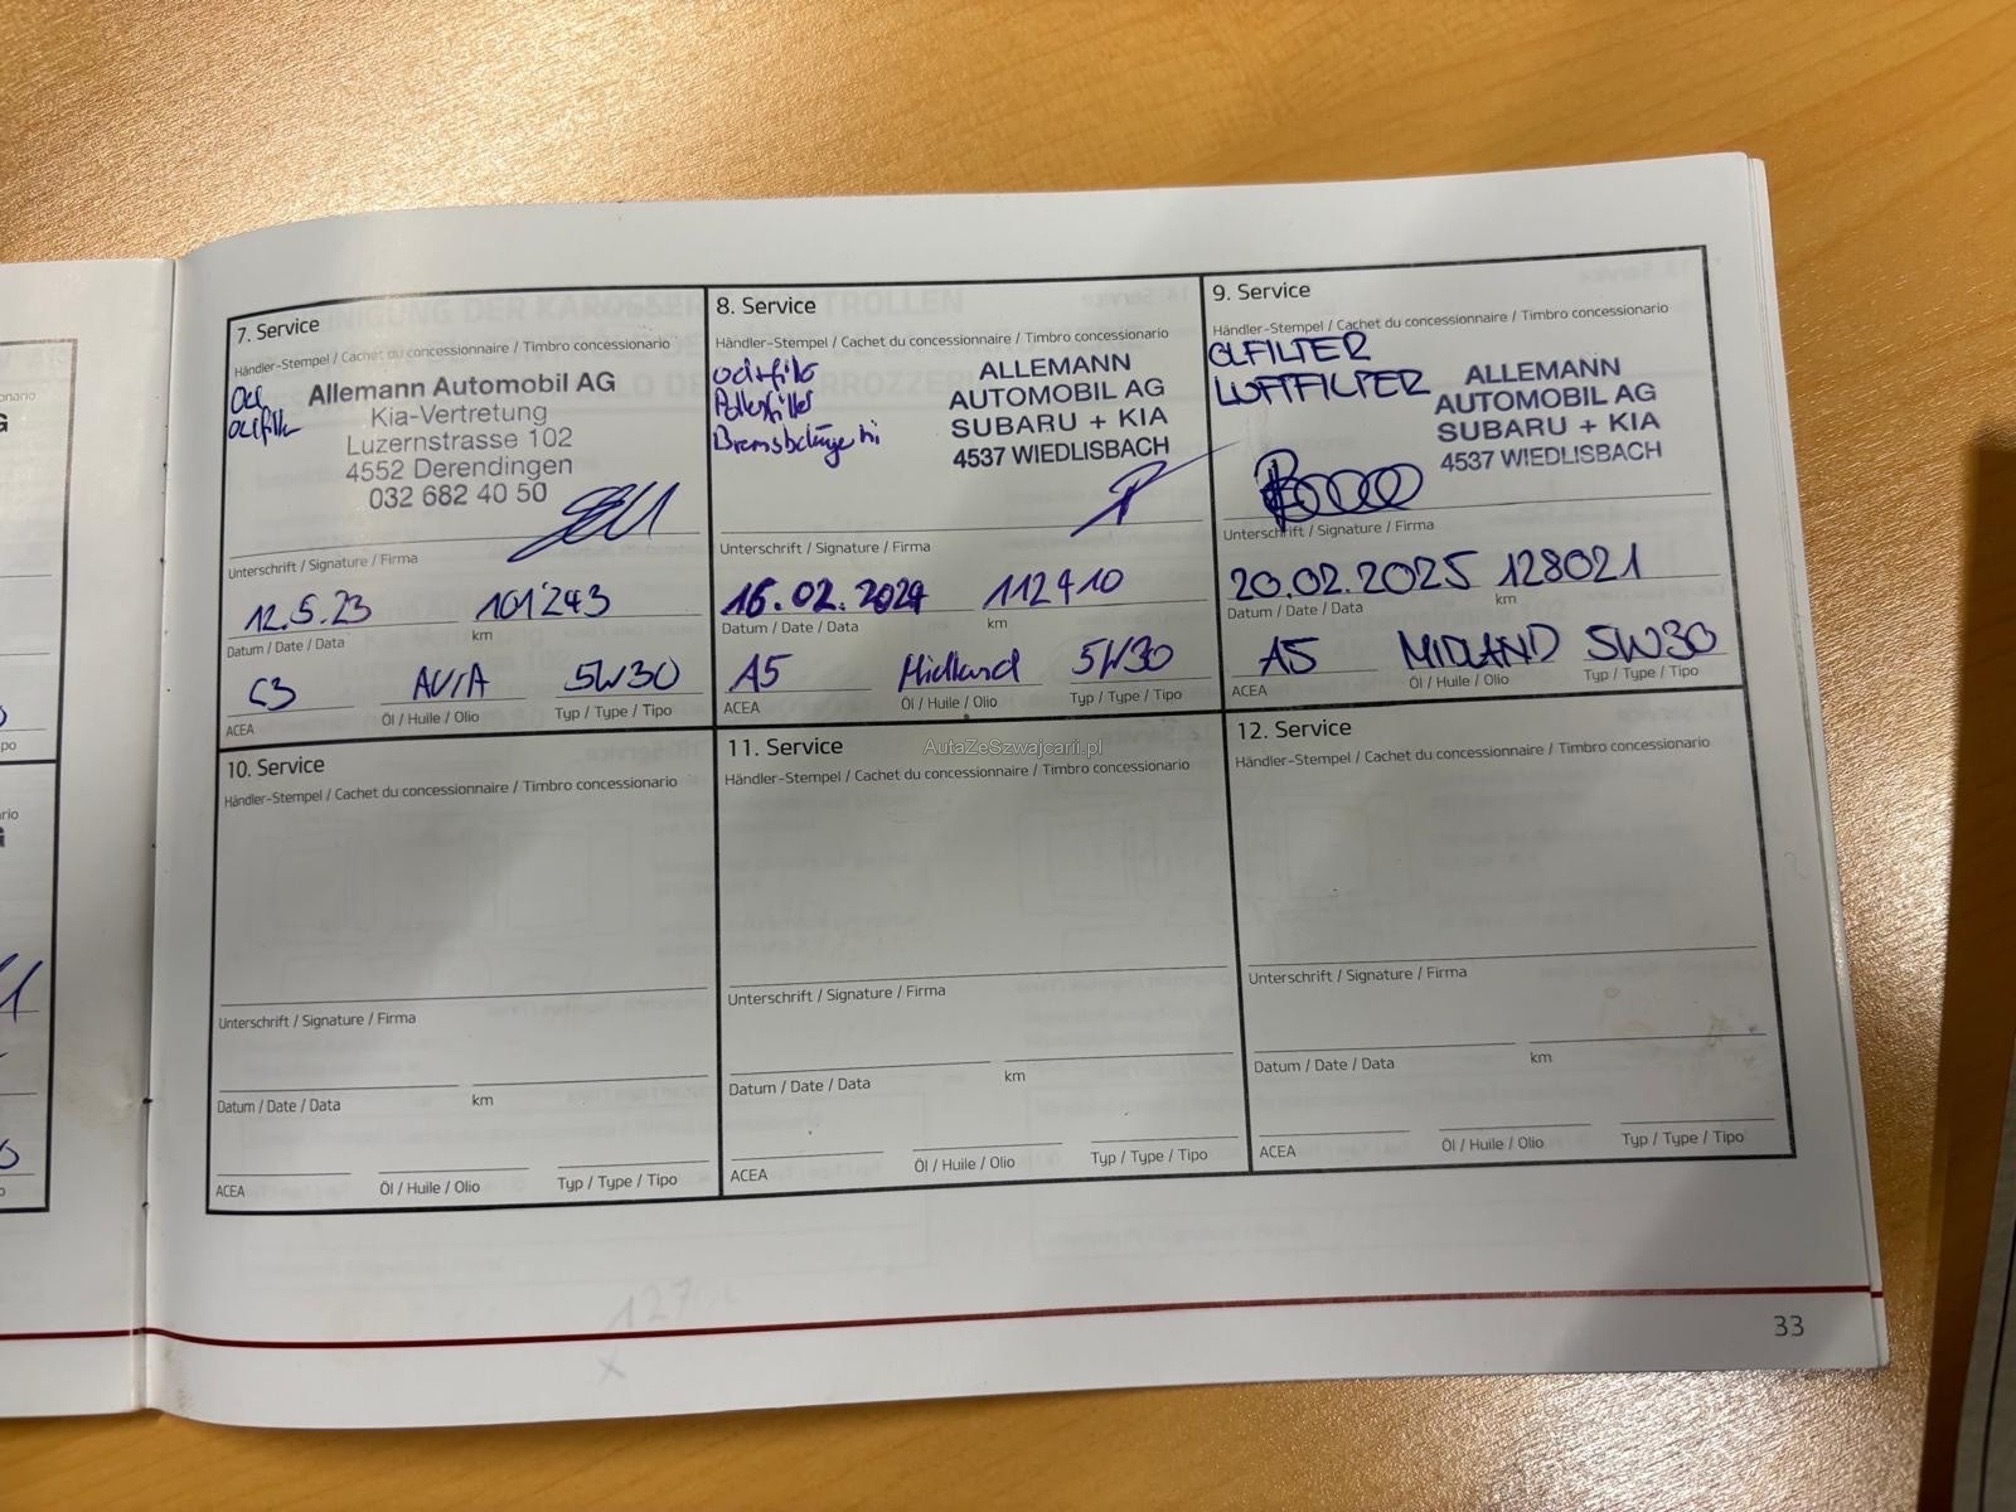 7. Service
Händler-Stempel / Cachet du concessionnaire / Timbro concessionario
Allemann Automobil AG
Kia-Vertretung
Luzernstrasse 102
4552 Derendingen
032 682 40 50
Unterschrift / Signature / Firma
12.5.23 101'243
Datum / Date / Data km
C3 AVIA 5W30
ACEA Öl / Huile / Olio Typ / Type / Tipo
8. Service
Händler-Stempel / Cachet du concessionnaire / Timbro concessionario
Pollenfilter
ALLEMANN
AUTOMOBIL AG
SUBARU + KIA
4537 WIEDLISBACH
Unterschrift / Signature / Firma
16.02.2024 112410
Datum / Date / Data km
A5 Midland 5W30
ACEA Öl / Huile / Olio Typ / Type / Tipo
9. Service
Händler-Stempel / Cachet du concessionnaire / Timbro concessionario
ÖLFILTER
LUFTFILTER
ALLEMANN
AUTOMOBIL AG
SUBARU + KIA
4537 WIEDLISBACH
Unterschrift / Signature / Firma
20.02.2025 128021
Datum / Date / Data km
A5 MIDLAND 5W30
ACEA Öl / Huile / Olio Typ / Type / Tipo
10. Service
Händler-Stempel / Cachet du concessionnaire / Timbro concessionario
Unterschrift / Signature / Firma
Datum / Date / Data km
ACEA Öl / Huile / Olio Typ / Type / Tipo
11. Service
AutaZeSzwajcarii.pl
Händler-Stempel / Cachet du concessionnaire / Timbro concessionario
Unterschrift / Signature / Firma
Datum / Date / Data km
ACEA Öl / Huile / Olio Typ / Type / Tipo
12. Service
Händler-Stempel / Cachet du concessionnaire / Timbro concessionario
Unterschrift / Signature / Firma
Datum / Date / Data km
ACEA Öl / Huile / Olio Typ / Type / Tipo
33